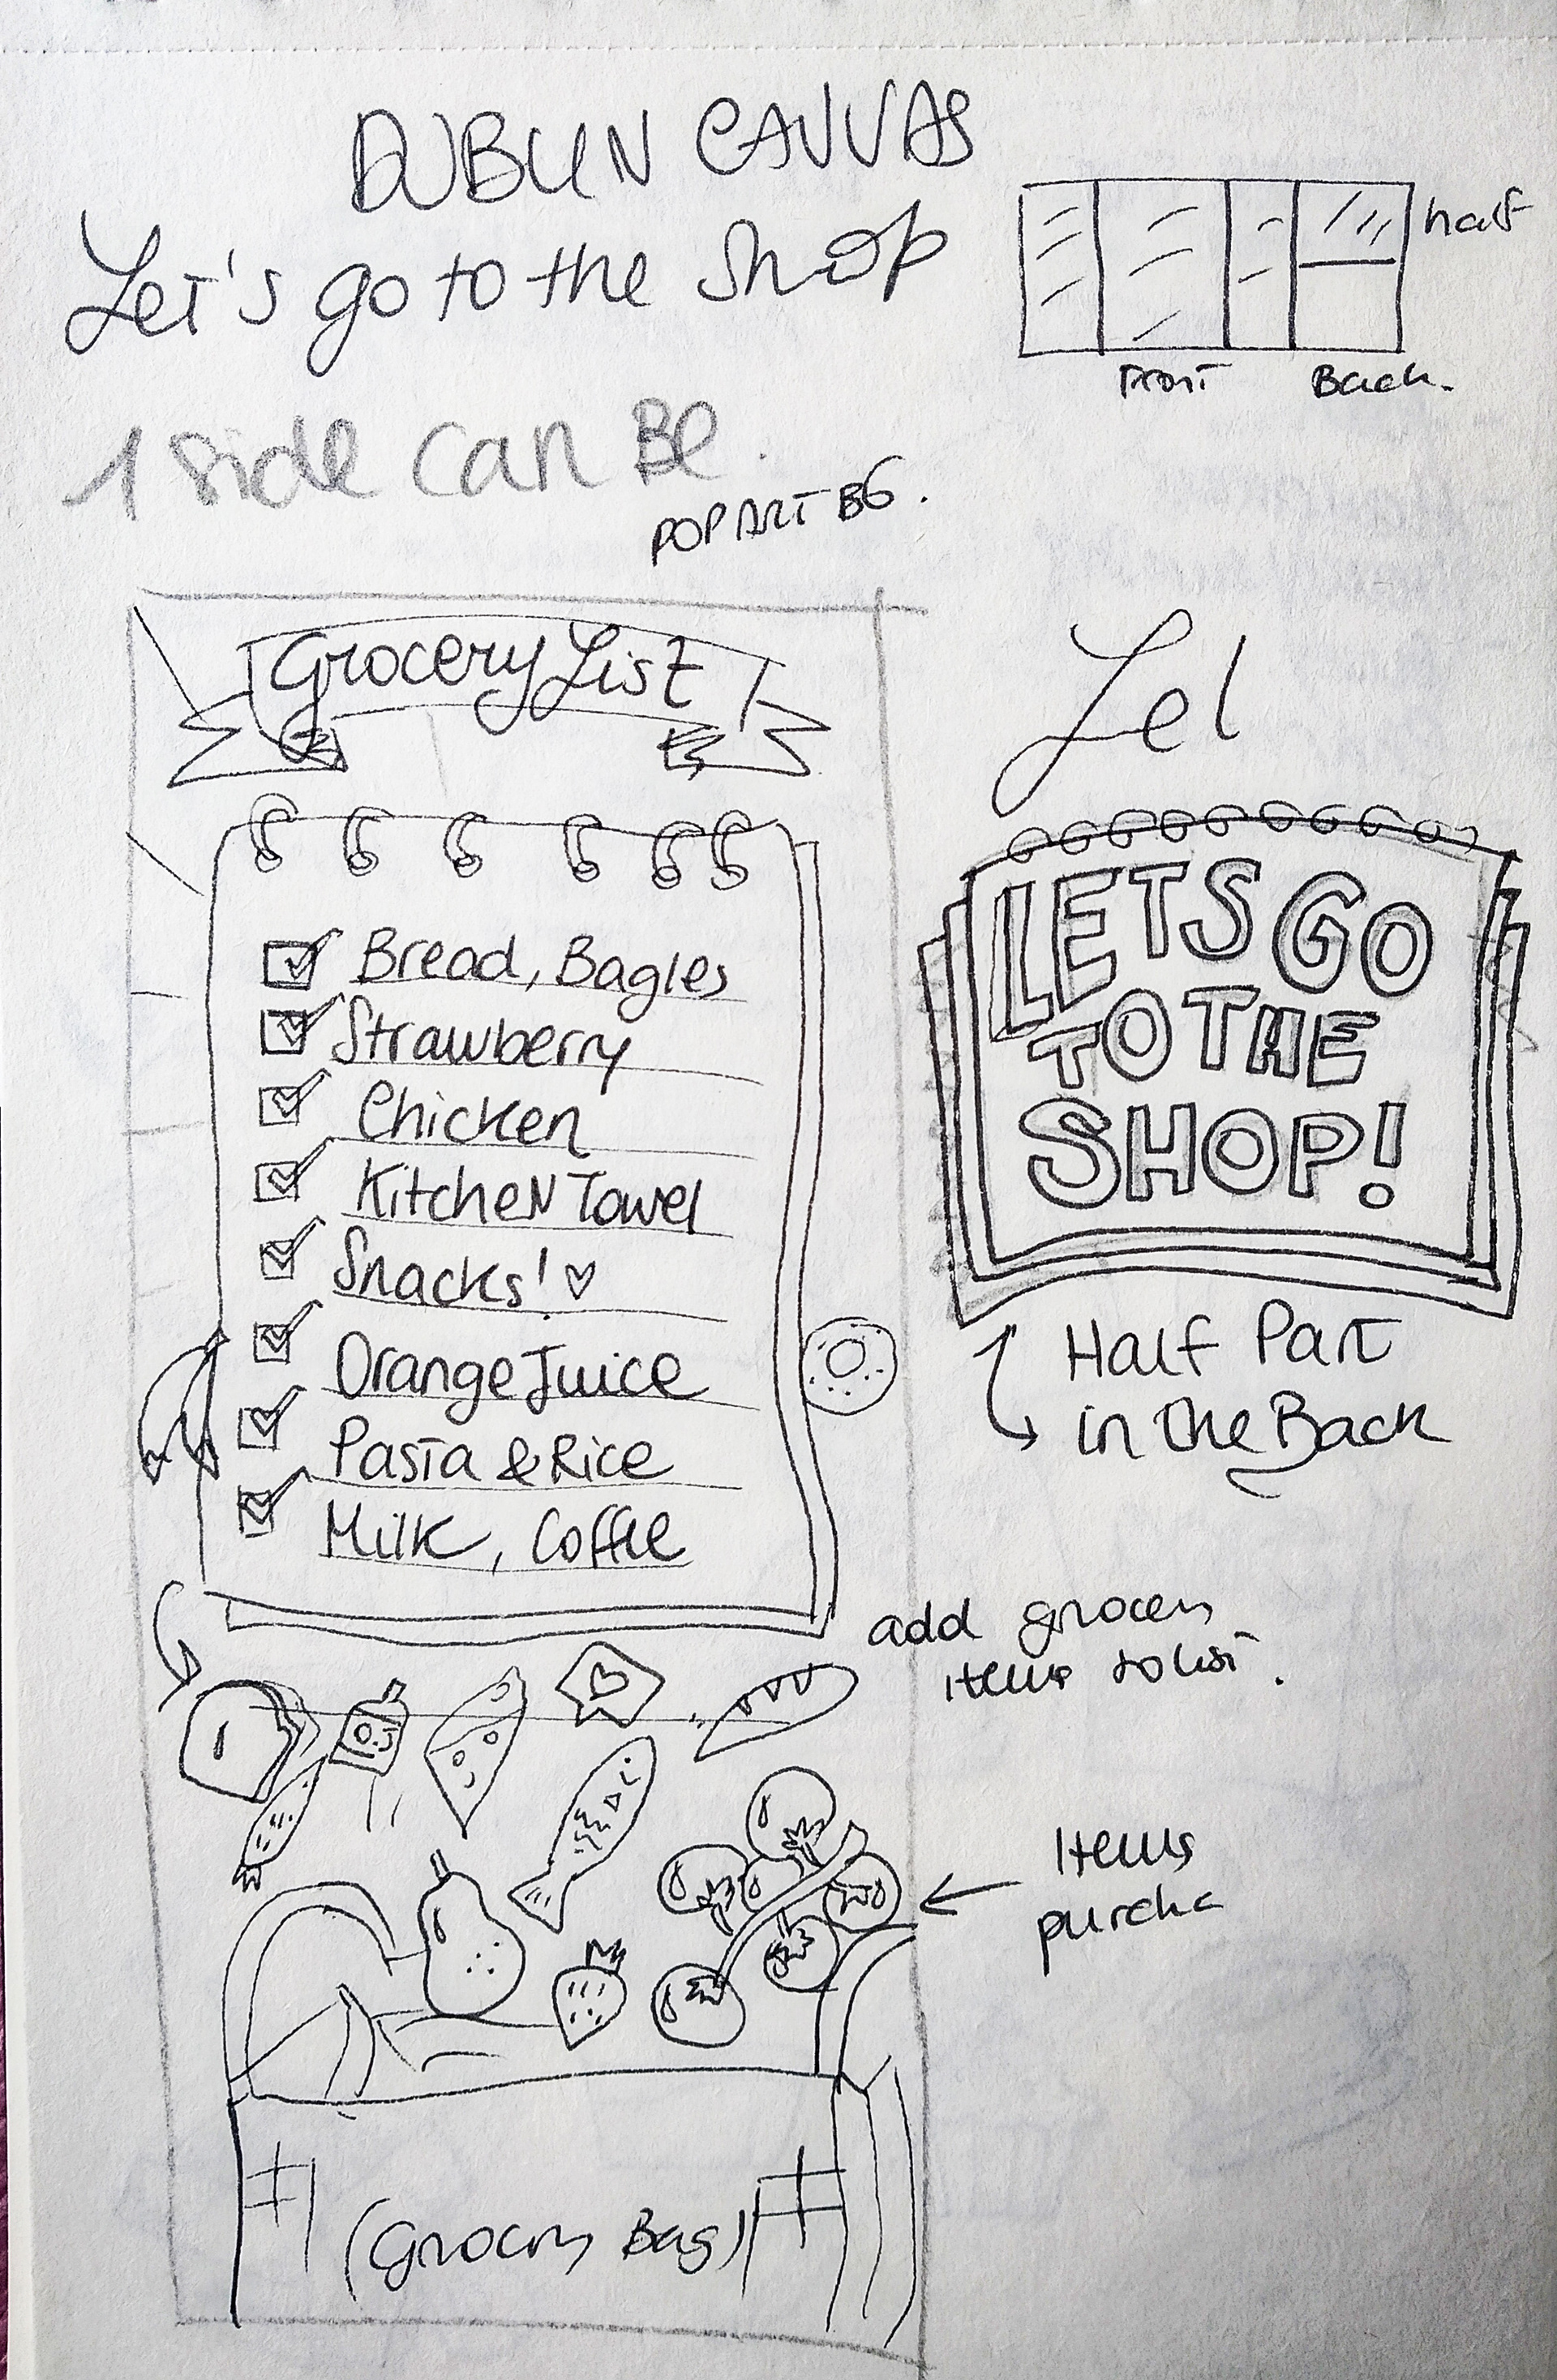 DUBLIN CANVAS
Let's go to the Shop
half
Front
Back.
1 side can Be.
POP ART BG.
Grocery List
Bread, Bagles
Strawberry
Chicken
Kitchen Towel
Snacks! ♡
Orange Juice
Pasta & Rice
Milk, Coffee
Let
LETS GO
TO THE
SHOP!
Half Part
in the Back
add grocery
items to list.
O.J
Items
purcha
(Grocery Bag)